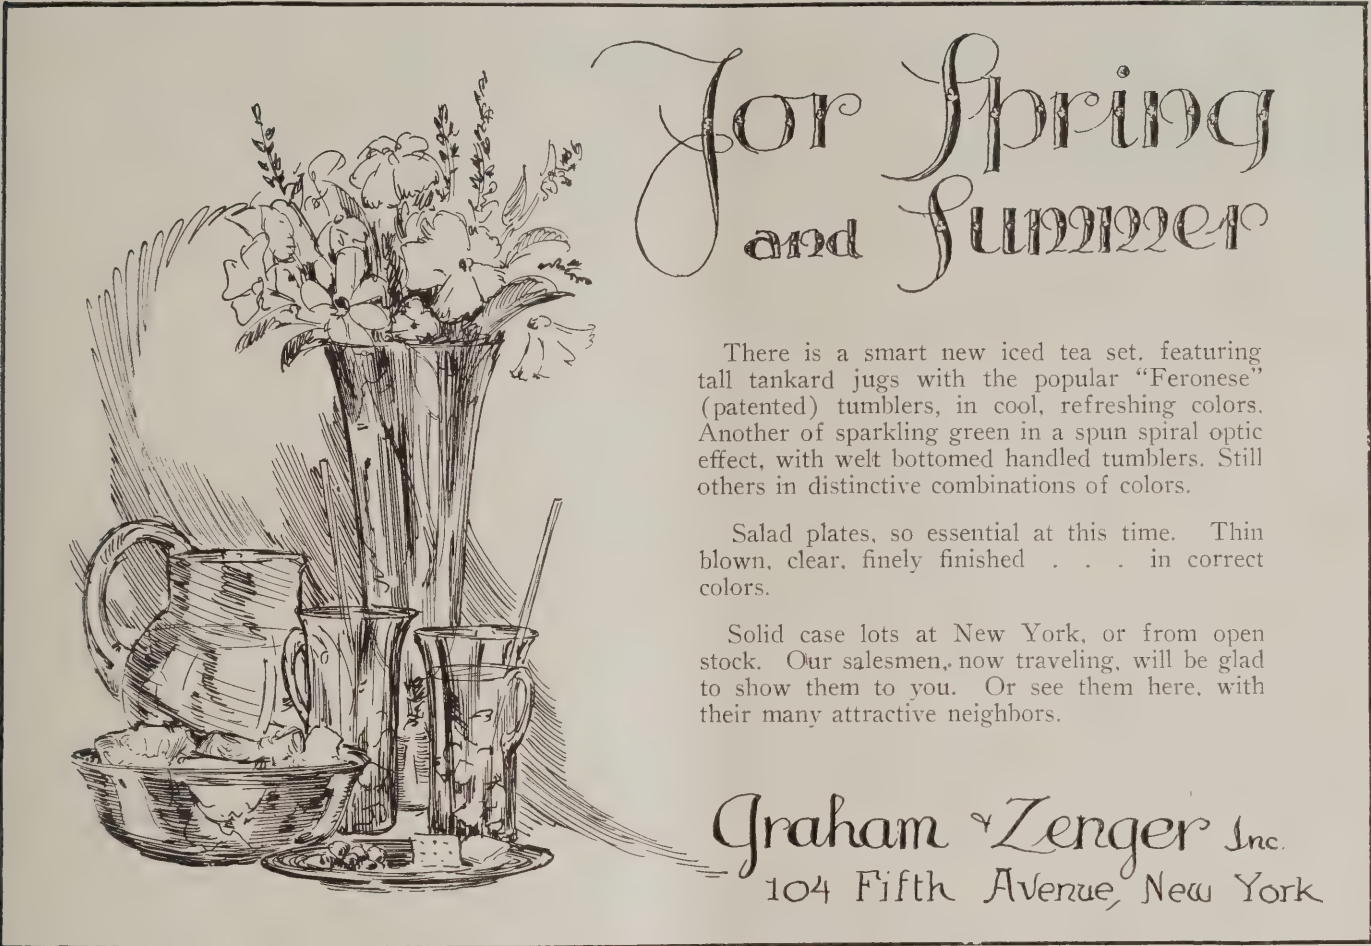 For Spring
and Summer
There is a smart new iced tea set, featuring
tall tankard jugs with the popular “Feronese”
(patented) tumblers, in cool, refreshing colors.
Another of sparkling green in a spun spiral optic
effect, with welt bottomed handled tumblers. Still
others in distinctive combinations of colors.
Salad plates, so essential at this time. Thin
blown, clear, finely finished . . . in correct
colors.
Solid case lots at New York, or from open
stock. Our salesmen, now traveling, will be glad
to show them to you. Or see them here, with
their many attractive neighbors.
Graham & Zenger Inc.
104 Fifth Avenue, New York